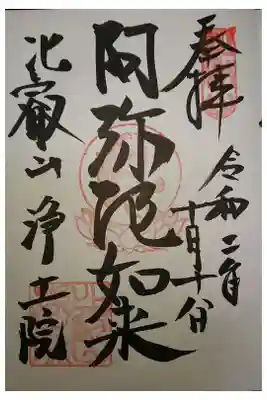 奉拝
令和二年
十月十八日
阿弥陀如来
比叡山
浄土院